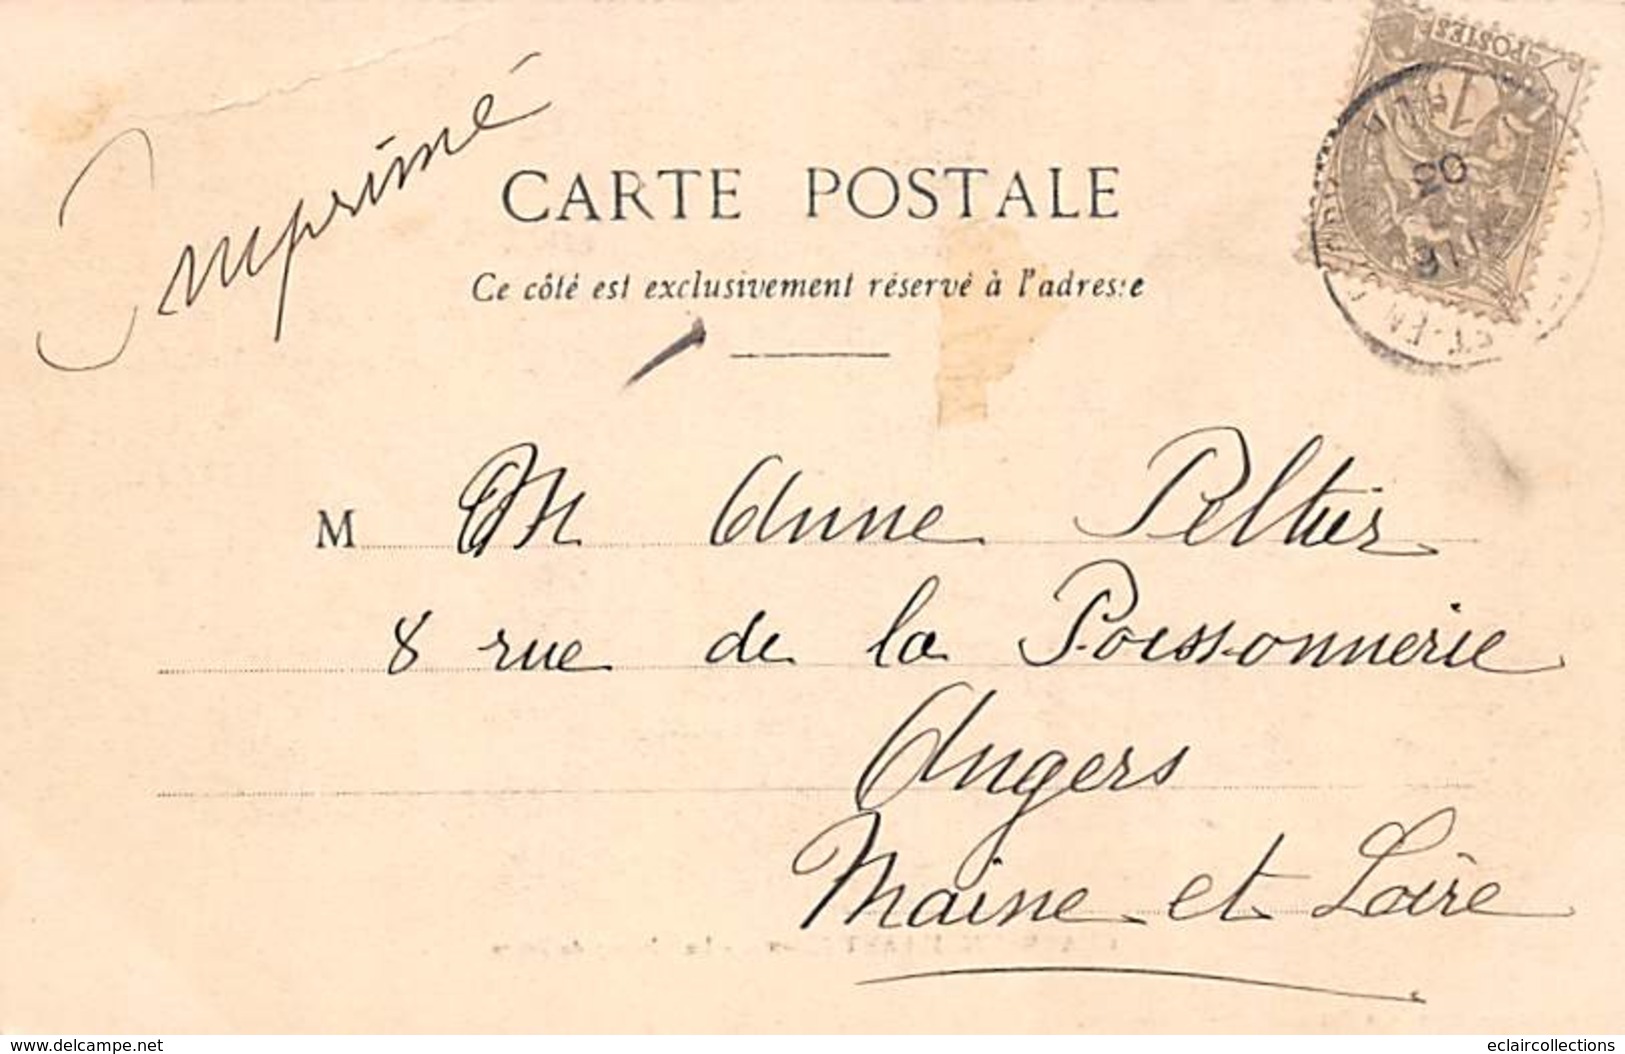 Imprimé
POSTES
1
CARTE POSTALE
03
Ce côté est exclusivement réservé à l'adresse
M M Anne Peltier
8 rue de la Poissonnerie
Angers
Maine et Loire
www.delcampe.net
eclaircollections